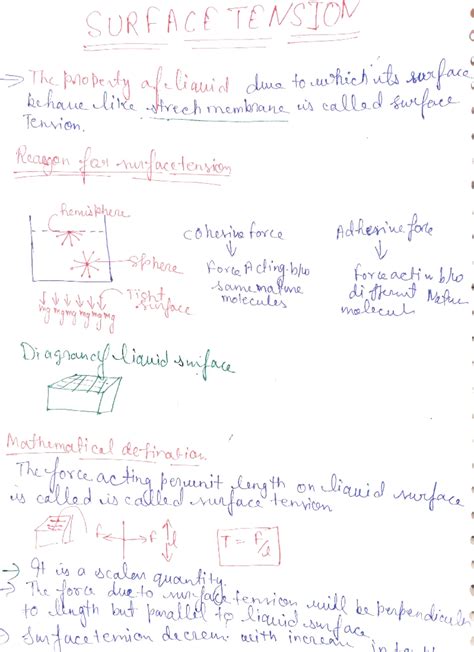 SURFACE TENSION
→ The property of liquid due to which its surface
behave like strech membrane is called surface
Tension.
Reason for surface tension
hemisphere
sphere
Tight
surface
mg mg mg mg mg mg
cohesive force
Force Acting b/w
same nature
molecules
Adhesive force
Force actin b/w
different Natur
molecul
Diagram of liquid surface
Mathematical defination
The force acting per unit length on liquid surface
is called is called surface tension
F F l
T = F/l
→ It is a scalar quantity.
→ The force due to surface tension will be perpendicular
to length but parallel to liquid surface
→ Surface tension decrease with increase in